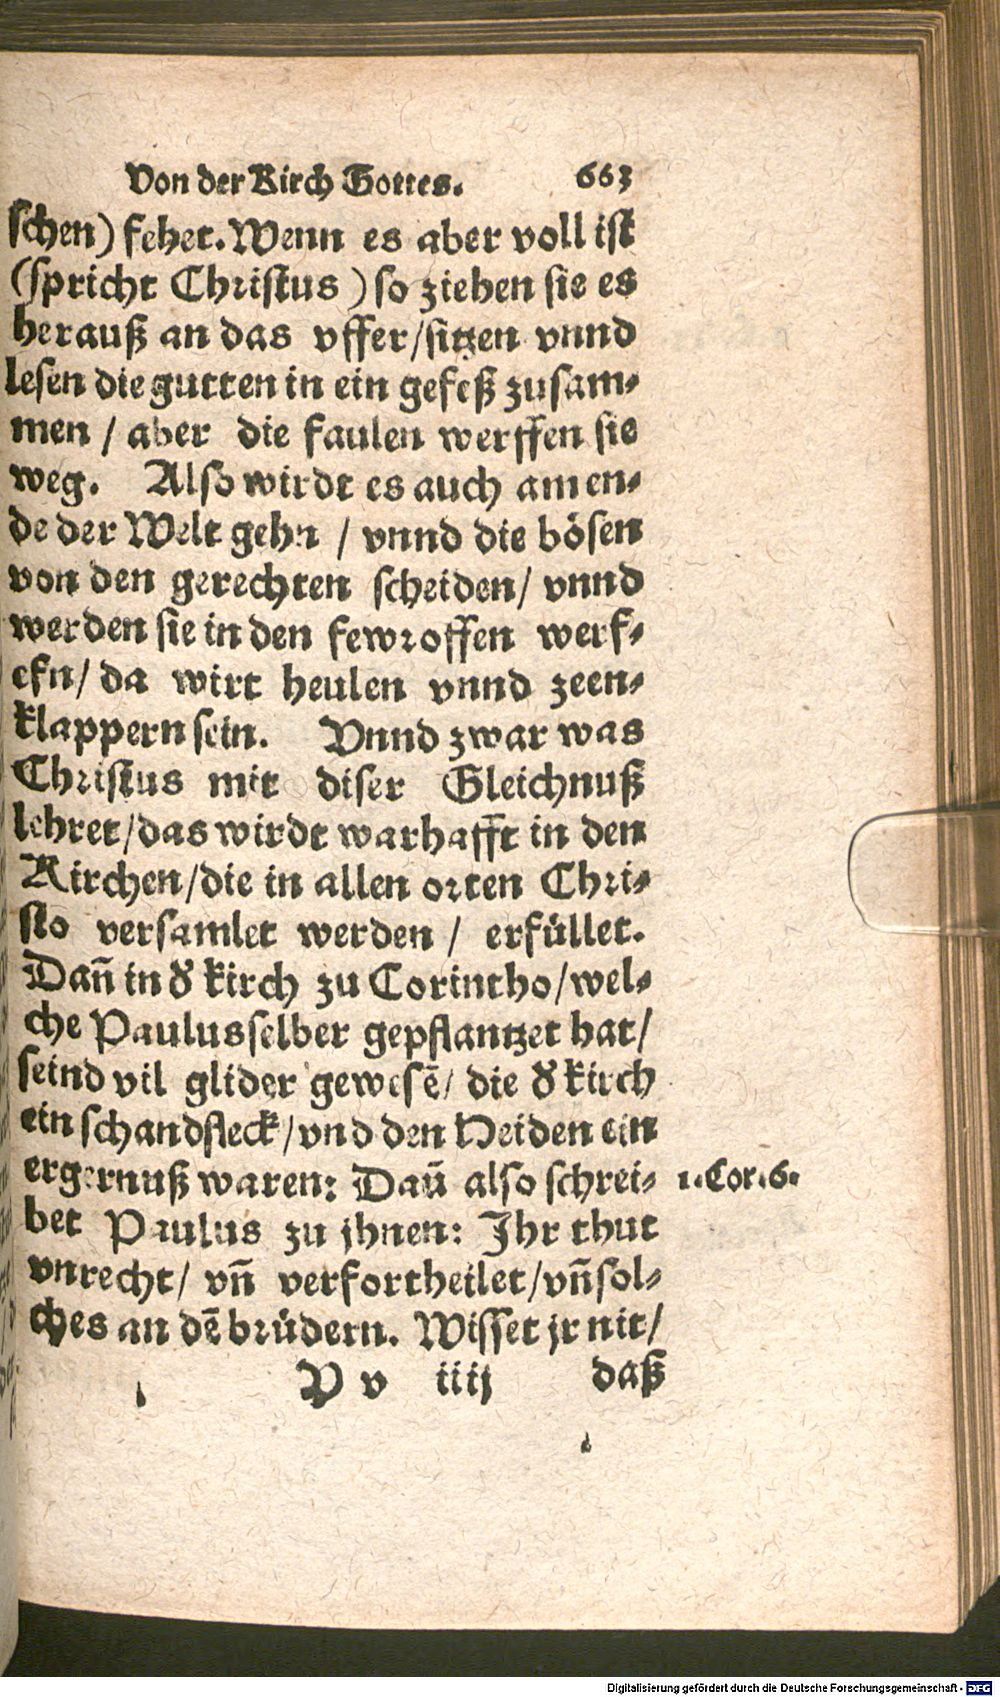 Von der Kirch Gottes. 663
schen) fehet. Wenn es aber voll ist
(spricht Christus) so ziehen sie es
herauß an das vffer/sitzen vnnd
lesen die gutten in ein gefeß zusam-
men / aber die faulen werffen sie
weg. Also wirdt es auch am en-
de der Welt gehn / vnnd die bösen
von den gerechten scheiden/ vnnd
werden sie in den fewroffen werf-
efn/ da wirt heulen vnnd zeen-
klappern sein. Vnnd zwar was
Christus mit diser Gleichnuß
lehret/das wirdt warhafft in den
Kirchen/die in allen orten Chri-
sto versamlet werden / erfüllet.
Dañ in d' kirch zu Corintho/wel-
che Paulus selber gepflantzet hat/
seind vil glider gewesẽ/ die d' kirch
ein schandfleck/vnd den Heiden ein
ergernuß waren: Dañ also schrei- 1. Cor. 6.
bet Paulus zu jhnen: Jhr thut
vnrecht/ vñ verfortheilet/vñ sol-
ches an dẽ brüdern. Wisset jr nit/
P v iiij daß
Digitalisierung gefördert durch die Deutsche Forschungsgemeinschaft - DFG